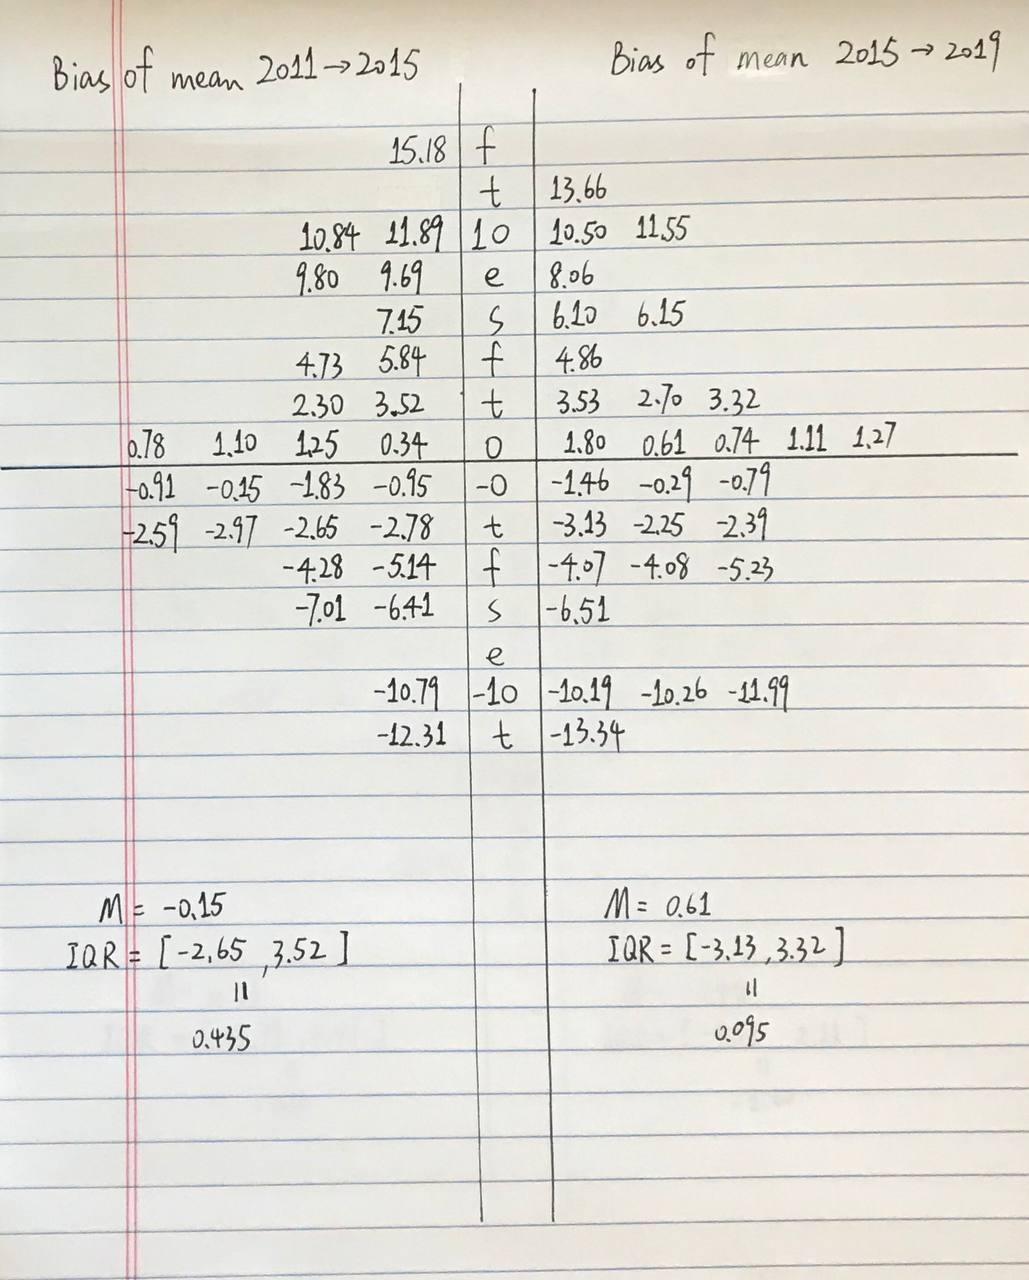 Bias of mean 2011→2015 Bias of mean 2015→2019
15.18 f
t 13.66
10.84 11.89 10 10.50 11.55
9.80 9.69 e 8.06
7.15 s 6.10 6.15
4.73 5.84 f 4.86
2.30 3.52 t 3.53 2.70 3.32
0.78 1.10 1.25 0.34 0 1.80 0.61 0.74 1.11 1.27
-0.91 -0.15 -1.83 -0.95 -0 -1.46 -0.29 -0.79
-2.59 -2.97 -2.65 -2.78 t -3.13 -2.25 -2.39
-4.28 -5.14 f -4.07 -4.08 -5.23
-7.01 -6.41 s -6.51
e
-10.79 -10 -10.19 -10.26 -11.99
-12.31 t -13.34
M = -0.15 M = 0.61
IQR = [-2.65, 3.52] IQR = [-3.13, 3.32]
= =
0.435 0.095